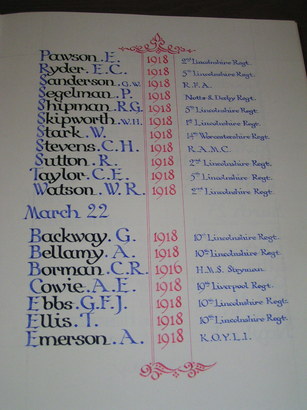 Pawson. E. 1918 2nd Lincolnshire Regt.
Ryder. E.C. 1918 5th Lincolnshire Regt.
Sanderson. G.W. 1918 R.F.A.
Segelman. P. 1918 Notts & Derby Regt.
Shipman. R.G. 1918 5th Lincolnshire Regt.
Skipworth. W.H. 1918 1st Lincolnshire Regt.
Stark. W. 1918 14th Worcestershire Regt.
Stevens. C.H. 1918 R.A.M.C.
Sutton. R. 1918 2nd Lincolnshire Regt.
Taylor. C.E. 1918 5th Lincolnshire Regt.
Watson. W.R. 1918 2nd Lincolnshire Regt.
March 22
Backway. G. 1918 10th Lincolnshire Regt.
Bellamy. A. 1918 10th Lincolnshire Regt.
Borman. C.R. 1916 H.M.S.
Cowie. A.E. 1918 10th Liverpool Regt.
Ebbs. G.F.J. 1918 10th Lincolnshire Regt.
Ellis. T. 1918 10th Lincolnshire Regt.
Emerson. A. 1918 K.O.Y.L.I.